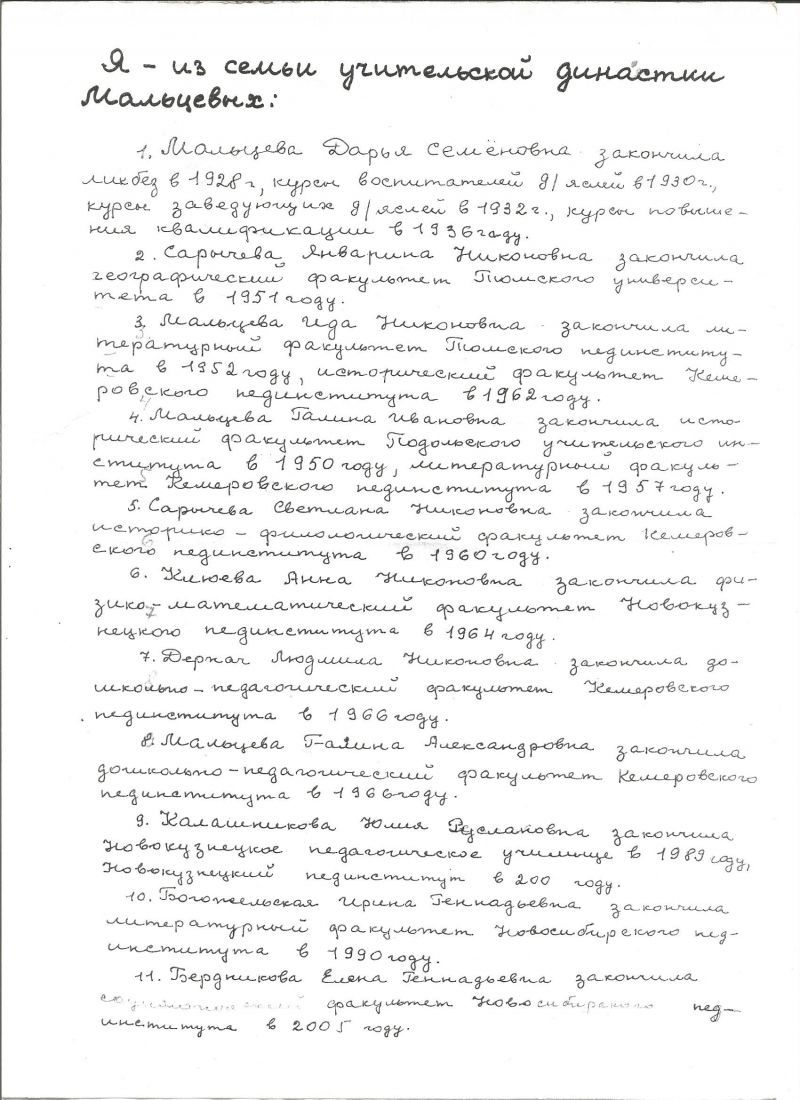 Я – из семьи учительской династии
Мальцевых:
1. Мальцева Дарья Семёновна закончила
ликбез в 1928 г, курсы воспитателей д/яслей в 1930 г.,
курсы заведующих д/яслей в 1932 г., курсы повыше-
ния квалификации в 1936 году.
2. Сарычева Январина Никоновна закончила
географический факультет Томского универси-
тета в 1951 году.
3. Мальцева Ида Никоновна закончила ли-
тературный факультет Томского пединститу-
та в 1952 году, исторический факультет Кеме-
ровского пединститута в 1962 году.
4. Мальцева Галина Ивановна закончила исто-
рический факультет Подольского учительского ин-
ститута в 1950 году, литературный факуль-
тет Кемеровского пединститута в 1957 году.
5. Сарычева Светлана Никоновна закончила
историко-филологический факультет Кемеров-
ского пединститута в 1960 году.
6. Клюева Анна Никоновна закончила фи-
зико-математический факультет Новокуз-
нецкого пединститута в 1964 году.
7. Деркач Людмила Никоновна закончила до-
школьно-педагогический факультет Кемеровского
пединститута в 1966 году.
8. Мальцева Галина Александровна закончила
дошкольно-педагогический факультет Кемеровского
пединститута в 1966 году.
9. Калашникова Юлия Руслановна закончила
Новокузнецкое педагогическое училище в 1989 году,
Новокузнецкий пединститут в 200 году.
10. Богомельская Ирина Геннадьевна закончила
литературный факультет Новосибирского пед-
института в 1990 году.
11. Бердникова Елена Геннадьевна закончила
факультет Новосибирского пед-
института в 2005 году.